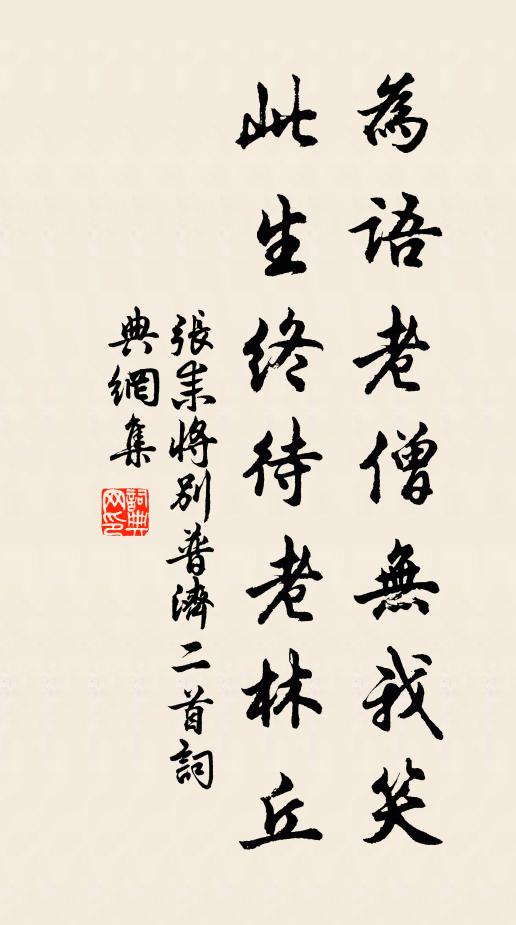 為語老僧無我笑
此生終待老林丘
張耒將別普濟二首詞
典網集
詞典網印